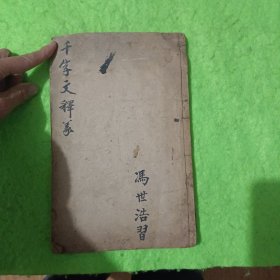 千字文釋義
馮世浩習